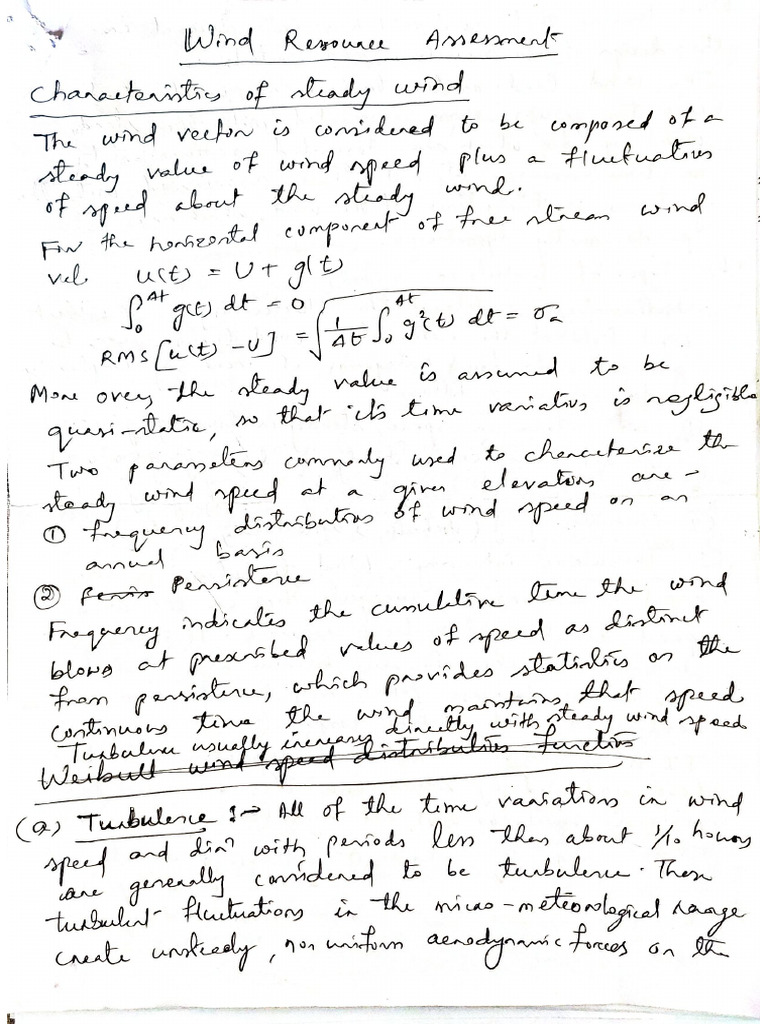 Wind Resource Assessment
Characteristics of steady wind
The wind vector is considered to be composed of a
steady value of wind speed plus a fluctuations
of speed about the steady wind.
For the horizontal component of free stream wind
vel. u(t) = U + g(t)
∫₀^Δt g(t) dt = 0
RMS[u(t) - U] = √(1/Δt ∫₀^Δt g²(t) dt) = σu
More over, the steady value is assumed to be
quasi-static, so that it's time variations is negligible
Two parameters commonly used to characterise the
steady wind speed at a given elevations are -
① frequency distributions of wind speed on an
annual basis
② Persistence
Frequency indicates the cumulative time the wind
blows at prescribed values of speed as distinct
from persistence, which provides statistics on the
continuous time the wind maintains that speed
Turbulence usually increases directly with steady wind speed
Weibull wind speed distributions functions
(a) Turbulence :→ All of the time variations in wind
speed and dirⁿ with periods less than about 1/10 hours
are generally considered to be turbulence. These
turbulent fluctuations in the micro-meteorological range
create unsteady, non uniform aerodynamic forces on the